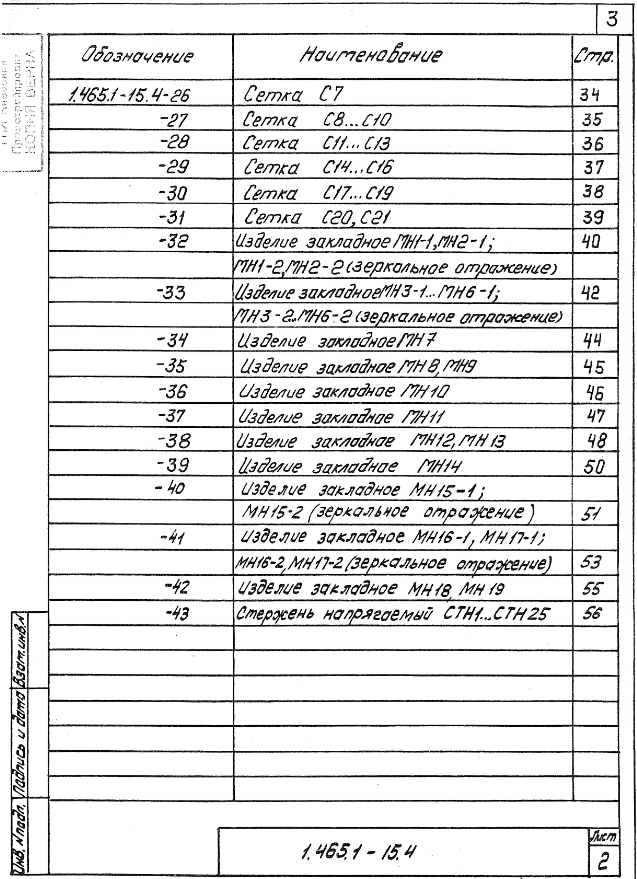 3
Обозначение Наименование Стр.
1.465.1-15.4-26 Сетка С7 34
-27 Сетка С8...С10 35
-28 Сетка С11...С13 36
-29 Сетка С14...С16 37
-30 Сетка С17...С19 38
-31 Сетка С20, С21 39
-32 Изделие закладное МН1-1, МН2-1; 40
МН1-2, МН2-2 (зеркальное отражение)
-33 Изделие закладное МН3-1...МН6-1; 42
МН3-2...МН6-2 (зеркальное отражение)
-34 Изделие закладное МН7 44
-35 Изделие закладное МН8, МН9 45
-36 Изделие закладное МН10 46
-37 Изделие закладное МН11 47
-38 Изделие закладное МН12, МН13 48
-39 Изделие закладное МН14 50
-40 Изделие закладное МН15-1;
МН15-2 (зеркальное отражение) 51
-41 Изделие закладное МН16-1, МН17-1;
МН16-2, МН17-2 (зеркальное отражение) 53
-42 Изделие закладное МН18, МН19 55
-43 Стержень напрягаемый СТН1...СТН25 56
КОПИЯ ВЕРНА
Взам.инв.N
Подпись и дата
Инв. N подл.
1.465.1-15.4
Лист
2